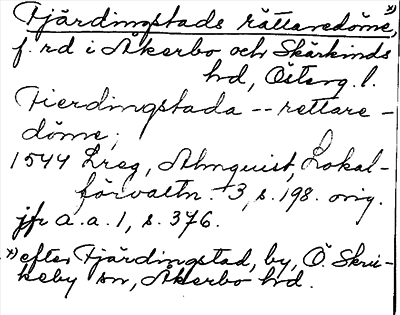 Fjärdingstads rättaredöme,¹⁾
f. rd i Åkerbo och Skärkinds
hd, Österg. l.
Fierdingstada -- rettare-
döme,
1544 Lreg, Almquist, Lokal-
förvaltn. 3, s. 198. orig.
jfr a.a. 1, s. 376.
¹⁾ efter Fjärdingstad, by, Ö. Skru-
keby sn, Åkerbo hd.